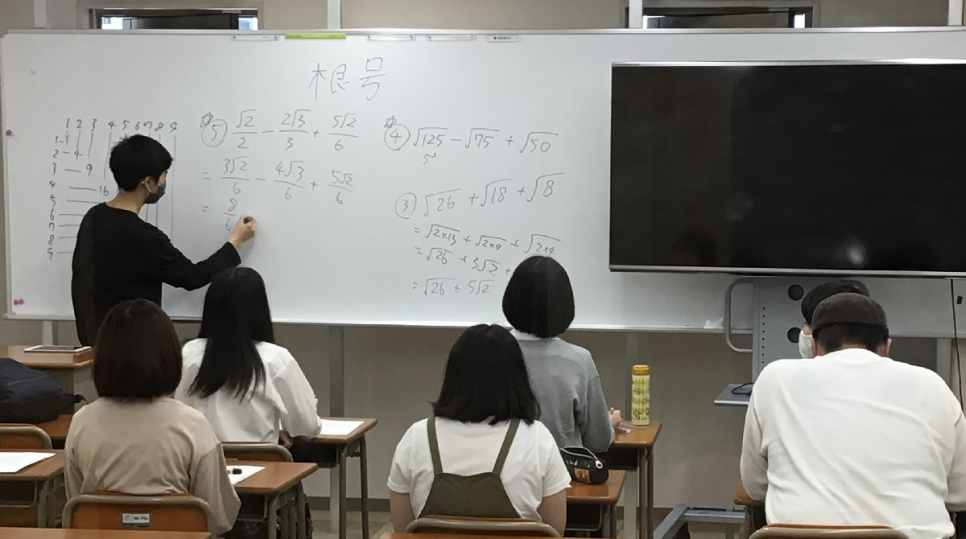 根号
1 2 3 4 5 6 7 8 9
1 1
2 4
3 9
4 16
5
6
7
8
9
⑤ √2/2 - 2√3/3 + 5√2/6
= 3√2/6 - 4√3/6 + 5√2/6
= 8/6
④ √125 - √75 + √50
5
③ √26 + √18 + √8
= √2×13 + √2×9 + √2×4
= √26 + 3√2 +
= √26 + 5√2